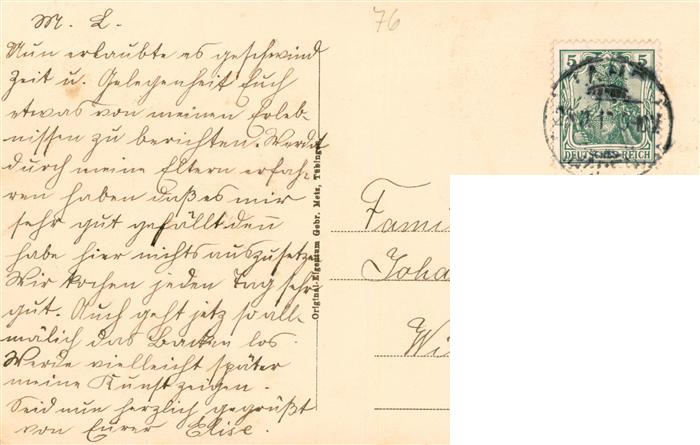 M. L.
76
Nun erlaubte es geschwind
Zeit u. Gelegenheit Euch
etwas von meinen Erleb-
nissen zu berichten. Werdet
durch meine Eltern erfah-
ren haben daß es mir
sehr gut gefällt denn
habe hier nichts auszusetzen
Wir kochen jeden Tag sehr
gut. Auch geht jetz so all-
mälich das Backen los.
Werde vielleicht später
meine Kunst zeigen.
Seid nun herzlich gegrüßt
von Eurer Elise.
Original-Eigentum Gebr. Metz, Tübingen
5 5
DEUTSCHES REICH
Famil
Joha
Wi